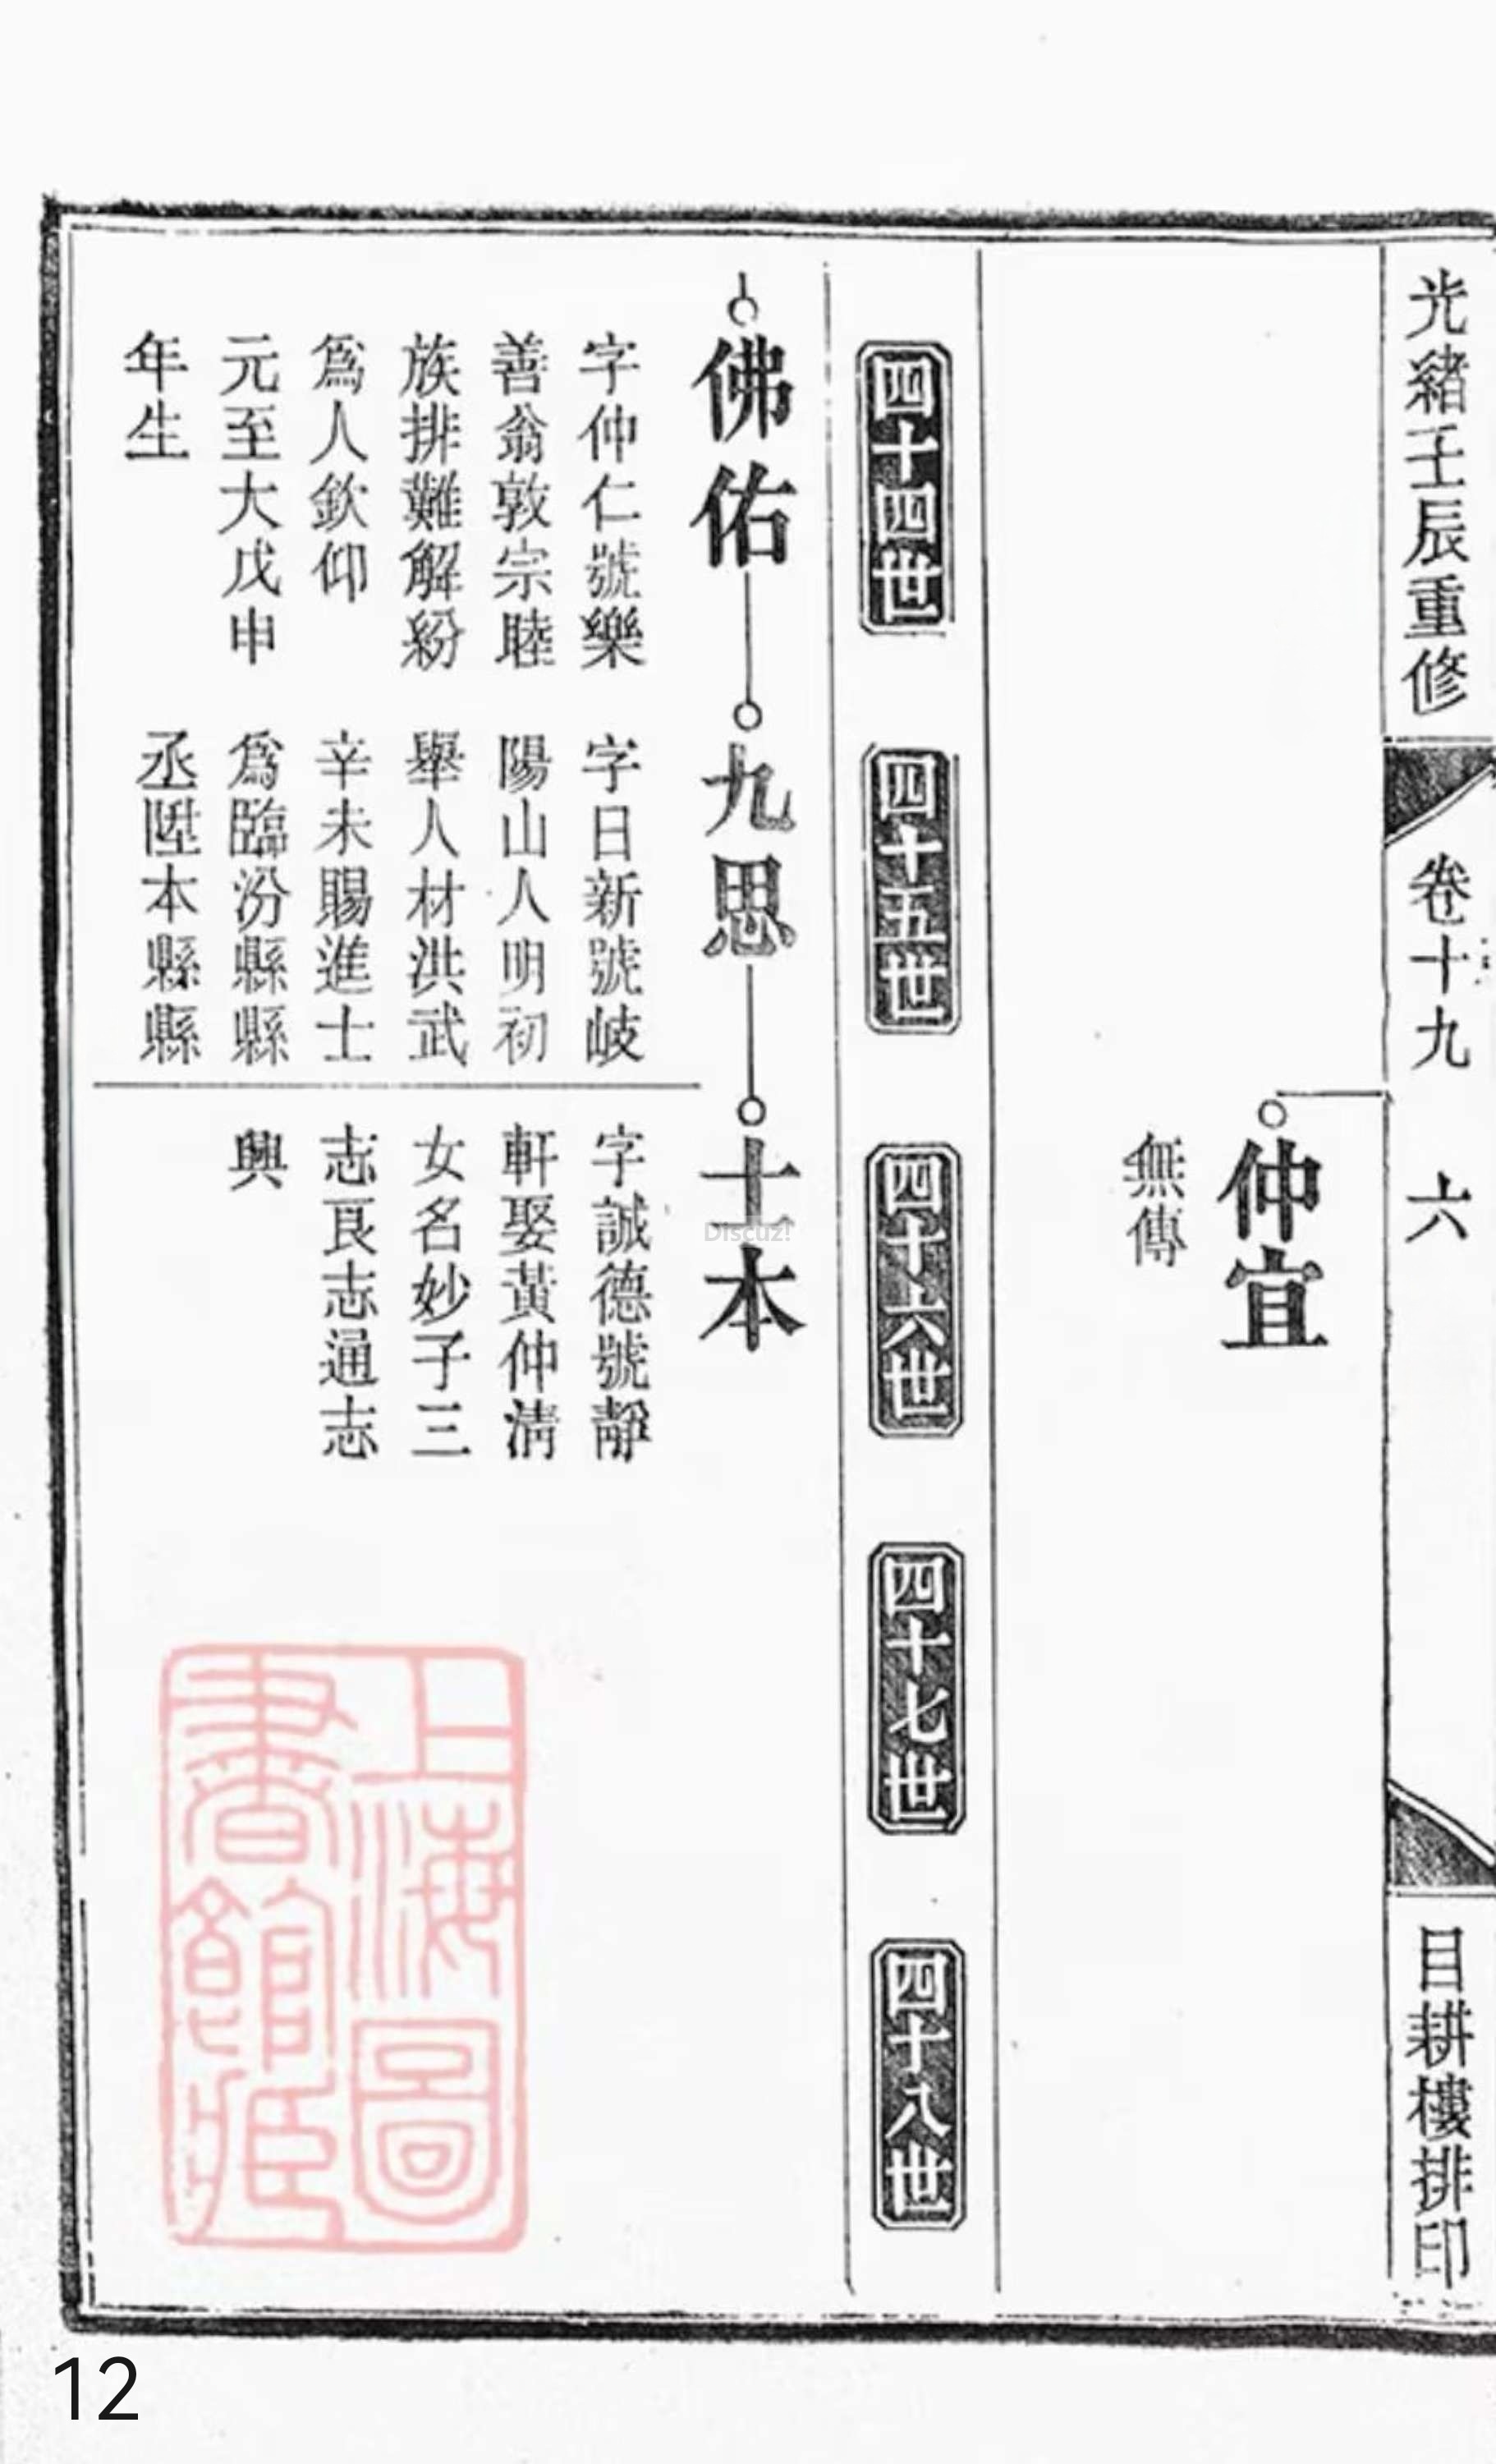 光緒壬辰重修
卷十九
六
目耕樓排印
仲宜
無傳
四十四世
四十五世
四十六世
四十七世
四十八世
佛佑
字仲仁號樂
善翁敦宗睦
族排難解紛
爲人欽仰
元至大戊申
年生
九思
字日新號岐
陽山人明初
舉人材洪武
辛未賜進士
爲臨汾縣縣
丞陞本縣縣
士本
字誠德號靜
軒娶黃仲淸
女名妙子三
志良志通志
興
上海圖
書館藏
Discuz!
12